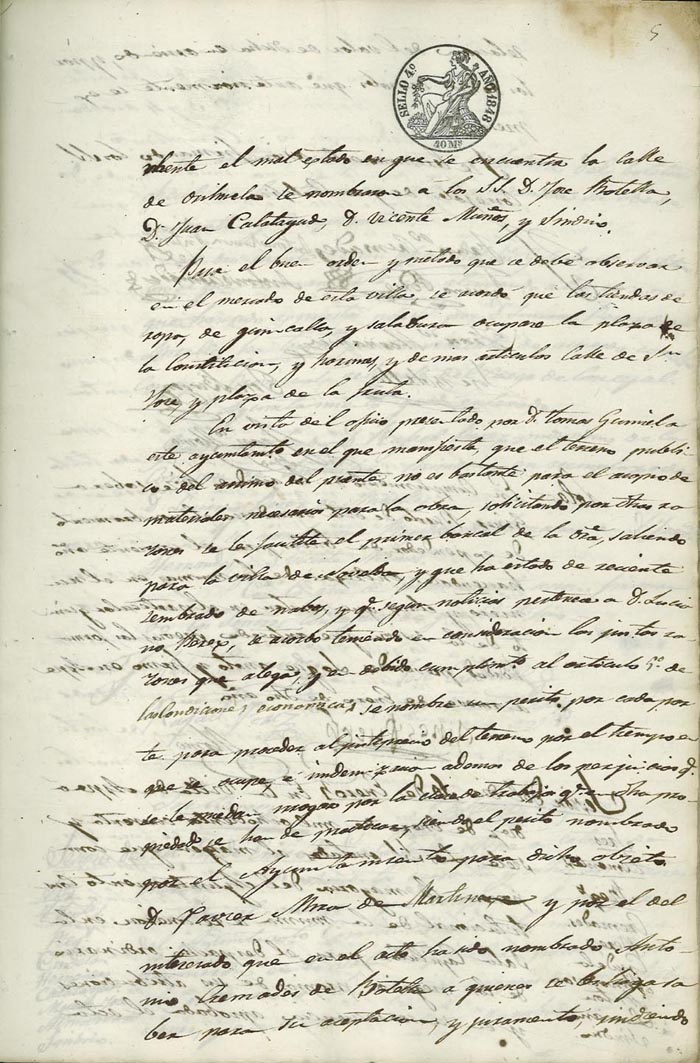 5
SELLO 4º AÑO 1848
40 Ms
mente el mal estado en que se encuentra la Calle
de orihuela se nombraron á los SS. D. Jose Botella,
D. Juan Calatayud, D. Vicente Muñoz, y Sindico.
Para el buen orden y metodo que se debe observar
en el mercado de esta villa, se acordó que las tiendas de
ropa, de quincalla, y saladura ocupase la plaza de
la Constitucion, y harinas, y demas articulos Calle de Sn
Jose, y plaza de la fruta.
En vista del oficio presentado por D. Tomas
este ayuntamto en el que manifiesta, que el terreno publi
co del del puente no es bastante para el acopio de
materiales necesarios para la obra, solicitando por otras ra
zones se le facilite el primer bancal de la dra, saliendo
para la villa de Novelda, y que ha estado de reciente
sembrado de nabos, y q. segun noticias pertenece a D. Lucia
no Perez, se acordo teniendo en consideracion las justas ra
zones que alega, y en debido cumplimto al articulo de
las Condiciones economicas, se nombre un perito por cada par
te para proceder al justiprecio del terreno por el tiempo en
que se ocupe, é indemnizar ademas de los perjuicios q.
se le puedan por la de trabajo q. en dha pro
piedad se han de practicar, siendo el perito nombrado
por el Ayuntamiento para dicho objeto
D. Javier Mira de Martinez y por el del
interesado que en el acto ha sido nombrado Anto-
nio Cremades de Botella a quienes se les haga sa
ber para su aceptacion, y juramento, rindiendo